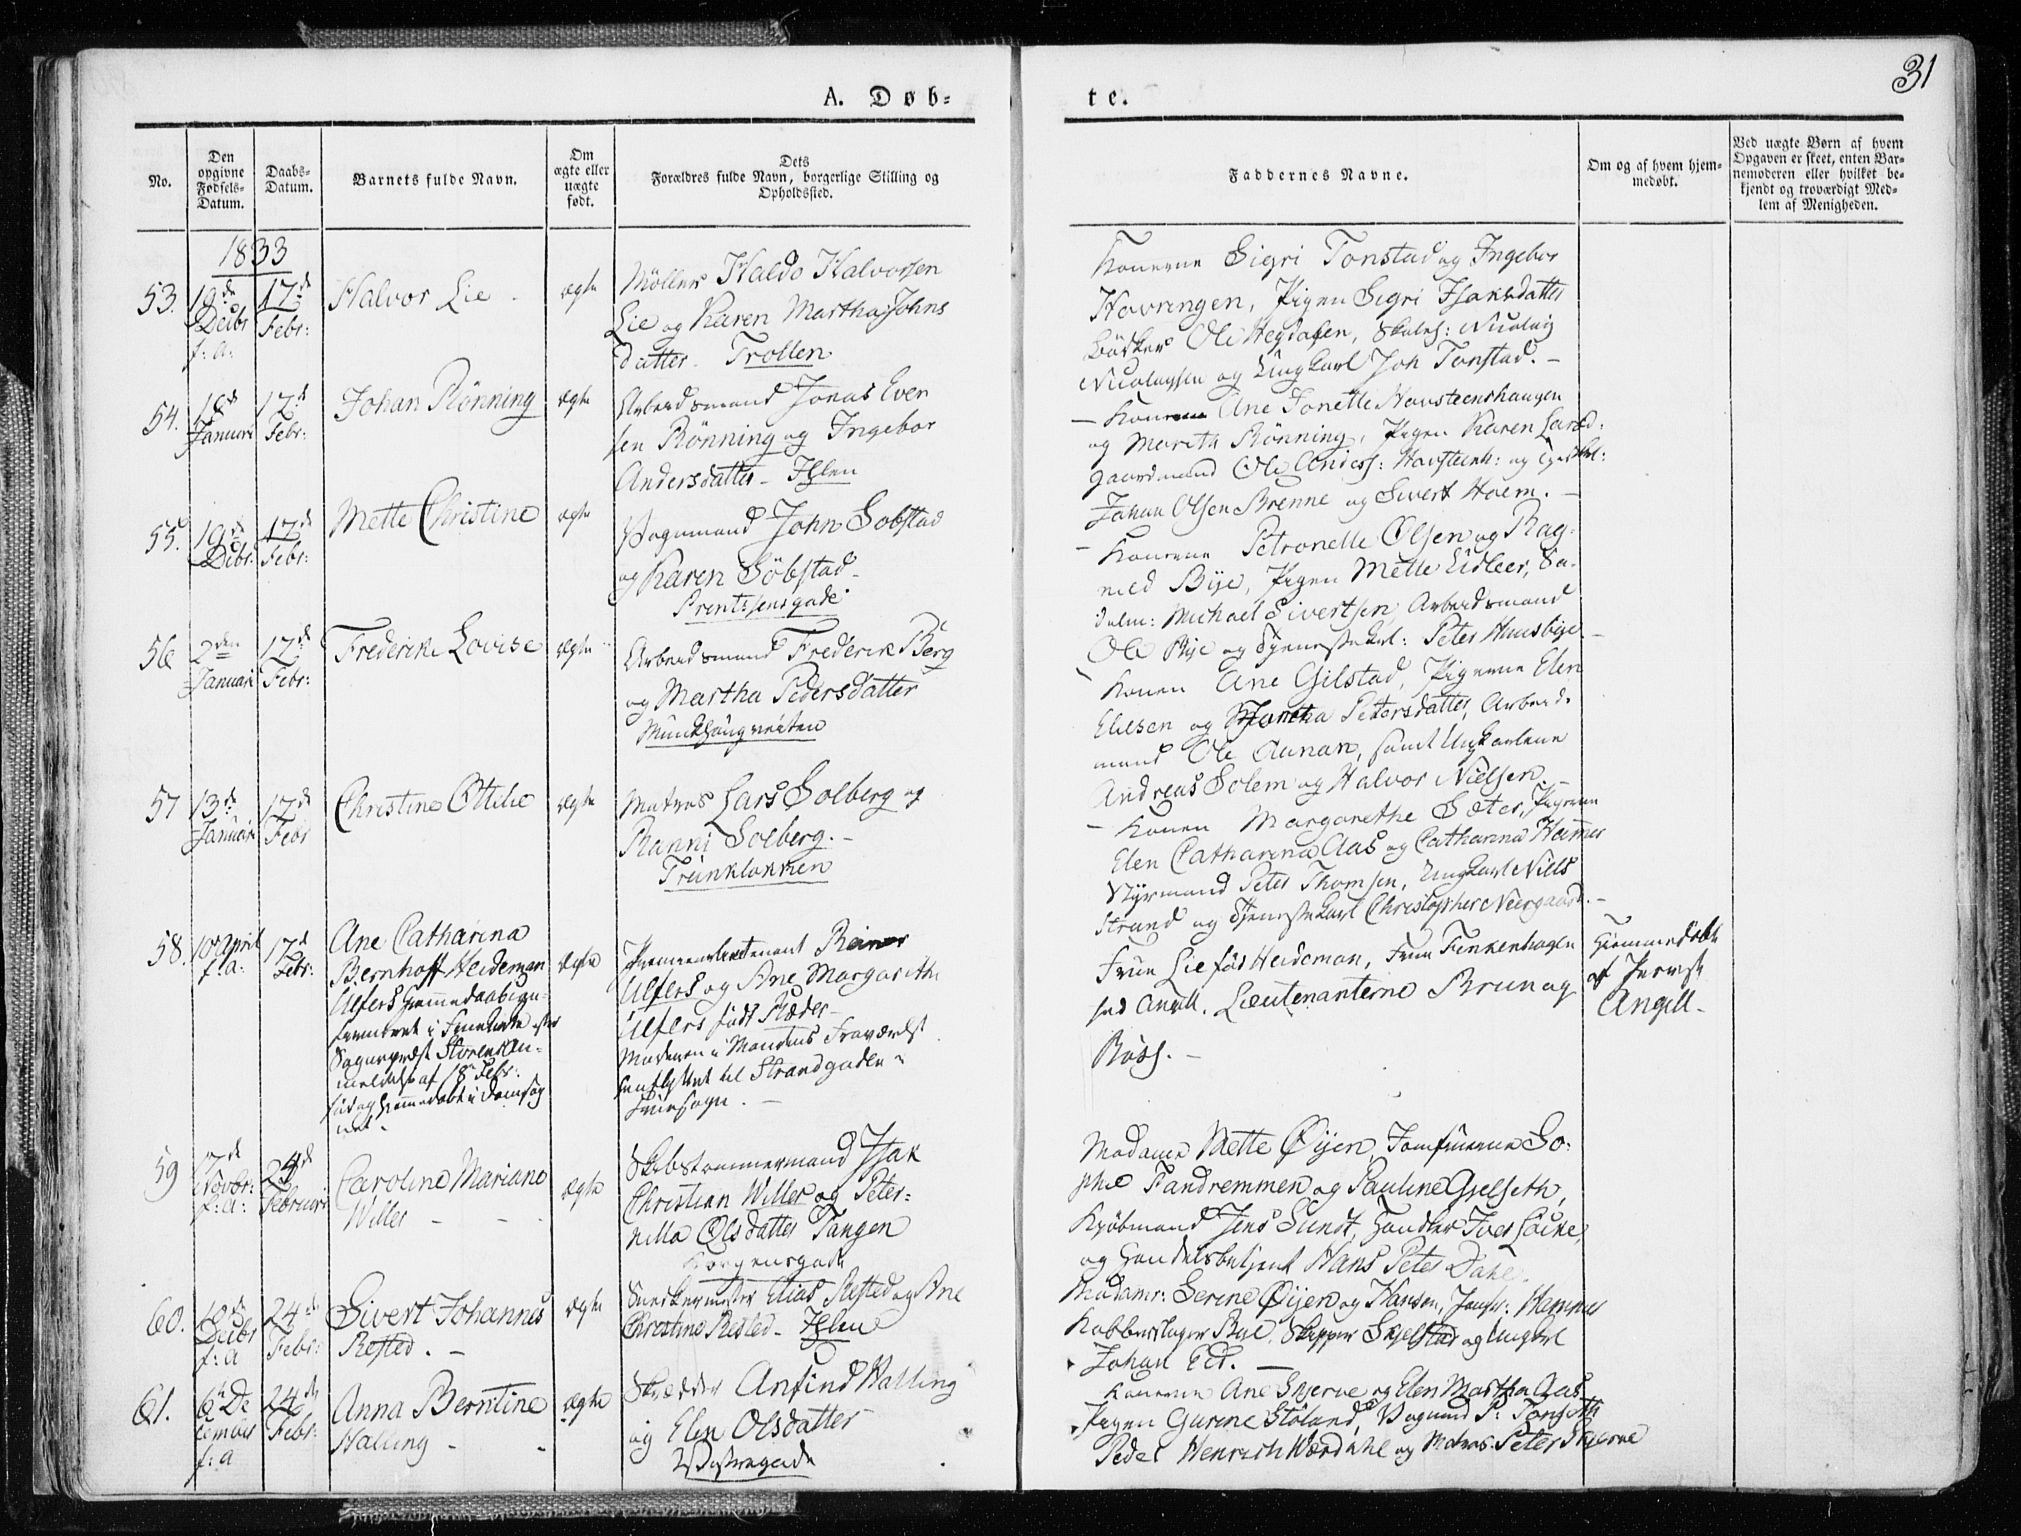 31
A. Døb-
te.
No.
Den opgivne Fødsels-Datum.
Daabs-Datum.
Barnets fulde Navn.
Om ægte eller uægte født.
Dets Forældres fulde Navn, borgerlige Stilling og Opholdssted.
Faddernes Navne.
Om og af hvem hjem-
medøbt.
Ved uægte Børn af hvem
Opgaven er skeet, enten Bar-
nemoderen eller hvilket be-
kjendt og troværdigt Med-
lem af Menigheden.
1833
53.
19de
Decbr
f: a:
17de
Febr:
Halvor Lie
ægte
Møller Haldo Halvorsen
Lie og Karen Martha Johns
datter. Trollen
Konerne Sigri Tonstad og Ingebor
Hovringen, Pigen Sigri Isaksdatter
Bødker Ole Hegdalen, Nicolaiy
Nicolaysen og Ungkarl Joh Tonstad.
54.
18de
Januari
17de
Febr:
Johan Rönning
ægte
Arbeidsmand Jonas Even
sen Rönning og Ingebor
Andersdatter - Ihlen
Konerne Ane Jonette Havsteenshaugen
og Marith Rönning, Pigen Karen
Gaardmand Ole Anders: Havsteensh: og
Johan Olsen Brenne og Sivert Hoem.
55.
19de
Decbr
17de
Febr:
Mette Christine
ægte
Vognmand John Sobstad
og Karen Söbstad
Prentssensgade
Konerne Petronelle Olsen og Rag-
nild Bye, Pigen Mette Lidleer, Sa-
delm: Michael Sivertsen, Arbeidsmand
Ole Bye og Tjenestekrl: Peter Huusbye
56
2den
Januari
17de
Febr:
Frederike Lovise
ægte
Arbeidsmand Frederik Berg
og Martha Pedersdatter
Munkhougveiten
Konen Ane Gilstad, Pigerne Elen
Elilsen og Martha Petersdatter, Arbeids-
mand Ole Aunan, samt Ungkarlene
Andreas Solem og Halvor Nielsen.
57
13de
Januari
17de
Febr
Christine Ottilie
ægte
Matros Lars Solberg og
Ranni Solberg.
Konen Margarethe Sæter, Pigerne
Elen Catharina Aas og Catharina Hammer
Styrmand Peter Thomsen, Ungkarl Niels
Strand og Tjenestekarl Christopher Neergaard.
58.
10 April
f. a:
17de
Febr:
Ane Catharina
Bernhoff Heideman
Ulfers
ægte
Premierlieutenant Reiner
Ulfers og Ane Margarethe
Ulfers født Ræder
Moderen i Mandens Fraværelse
henflyttet til Strandgaden
Fruesogn.
Frue Lie fød Heideman, Frue Finkenhagen
fød Angell. Lieutenanterne Brun og
Hjemmedøbt
af Provst
Angell.
59
7de
Novbr:
f: a:
24de
Februari
Caroline Mariane
Willer
ægte
Skibstømmermand Isak
Christian Willer og Peter-
nilla Olsdatter Tangen
Kongensgade
Madame Mette Øijen, Jomfruerne So-
phie Fandremmen og Pauline Gjelseth,
Kjøbmand Jens Lundt, Handler Iver Locke,
og Handelsbetjent Hans Peter Dahl.
60.
10de
Decbr
f: a
24de
Febr:
Sivert Johannes
Rested.
ægte
Snedkermester Elias Rested og Ane
Christine Rested - Ihlen
Madamr: Serine Øijen og Hansen, Jomfr: Hammer
Kobberslager Bye, Skipper Skjelstad og Ungkrl
Johan Eid.
61.
6te De
cember
f: a
24de
Febr:
Anna Berntine
Halling
ægte
Skrædder Anfind Halling
og Elen Olsdatter
Konerne Ane Skjerve og Elen Martha Aas
Pigen Gurine Stöland, Vognmd P: Tonseth
Pedel Henrich Værdahl og Matros Peter Skjerve